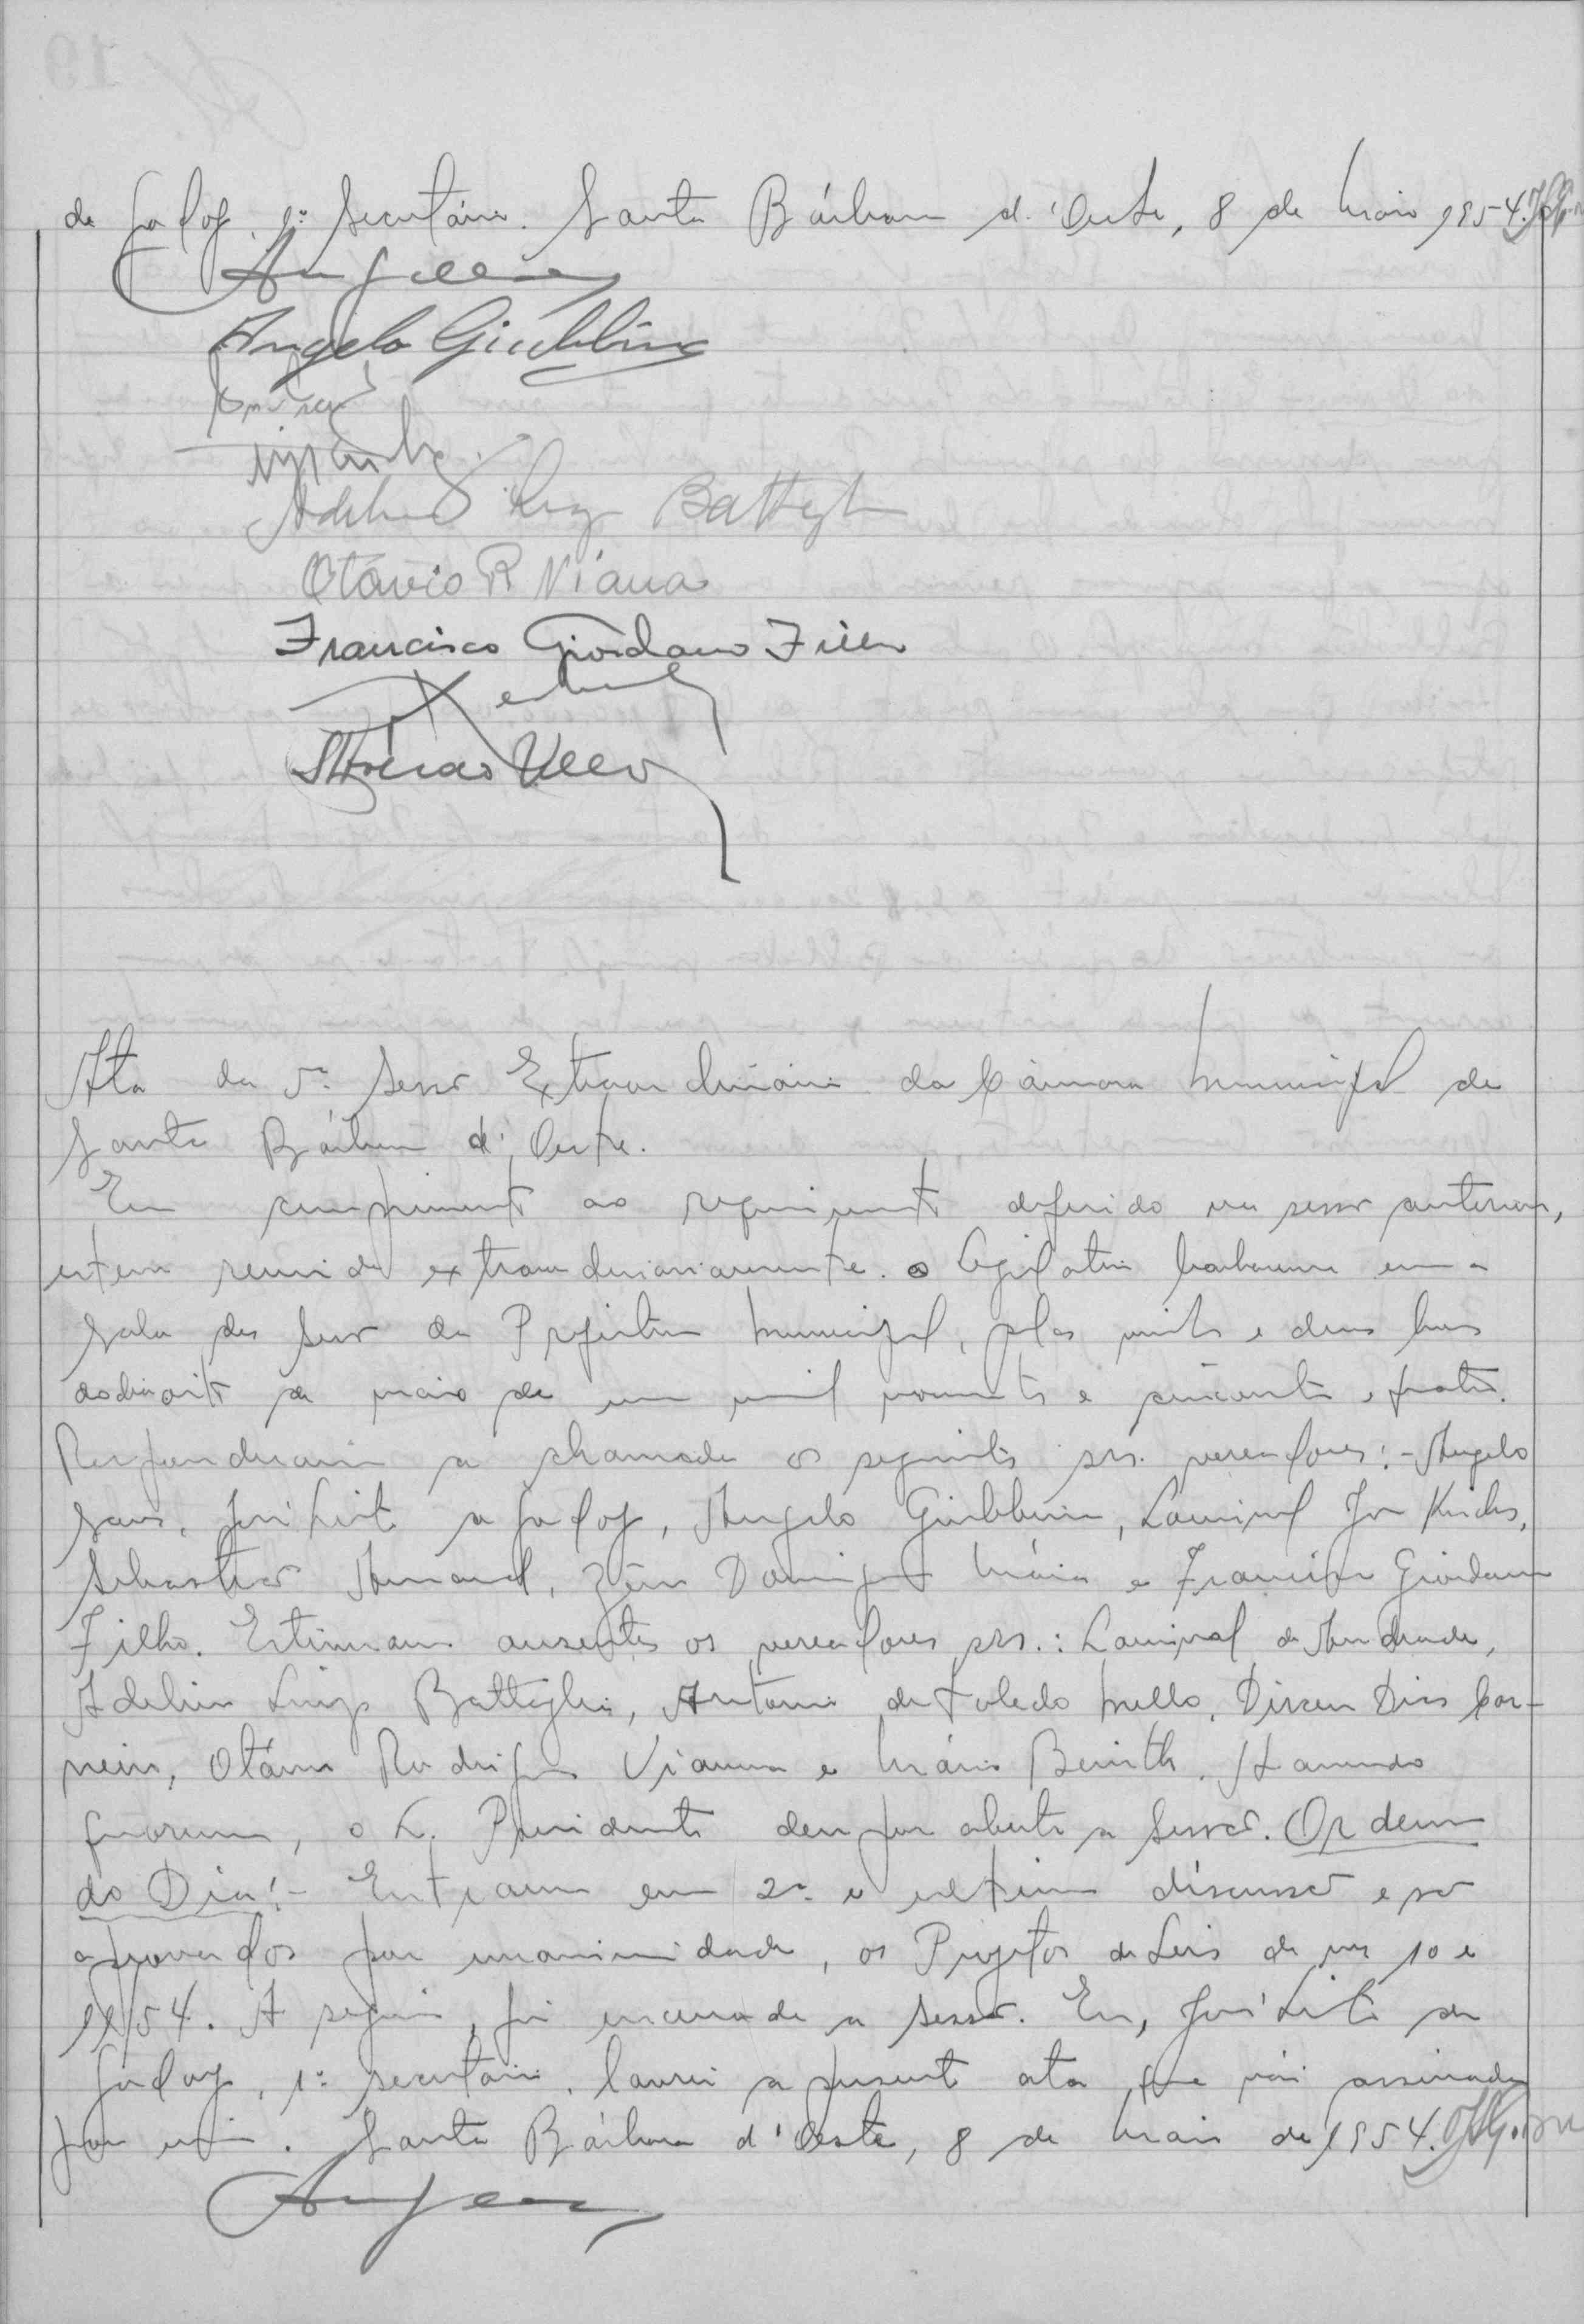 de Godoy, 1º Secretário. Santa Bárbara d'Oeste, 8 de Maio 1954.
Angelo Giubbina
Adelino Luiz Battaglia
Otávio R Viana
Francisco Giordano Filho
Ata da 5ª Sessão Extraordinária da Câmara Municipal de
Santa Bárbara d'Oeste.
Em cumprimento ao requerimento deferido na sessão anterior,
esteve reunido extraordinariamente o Legislativo barbarense em a
sala das Sessões da Prefeitura Municipal, pelas vinte e duas horas
do dia oito de maio de um mil novecentos e cincoenta e quatro.
Responderam a chamada os seguintes srs. vereadores:- Angelo
Sans, José Leite de Godoy, Angelo Giubbina, Lourival
Sebastião Domingos Mária e Francisco Giordano
Filho. Estiveram ausentes os vereadores srs.: Lourival de Andrade,
Adelino Luiz Battaglia, Antonio de Toledo Mello, Dirceu Dias Car-
neiro, Otávio Rodrigues Vianna e Mário Havendo
quorum, o S. Presidente deu por aberta a Sessão. Ordem
do Dia:- Entraram em 2ª e ultima discussão e são
aprovados por unanimidade, os Projetos de Leis de nos 10 e
11/54. A seguir, foi encerrada a sessão. Eu, José Leite de
Godoy, 1º secretário, lavrei a presente ata que vai assinada
por mim. Santa Bárbara d'Oeste, 8 de Maio de 1954.